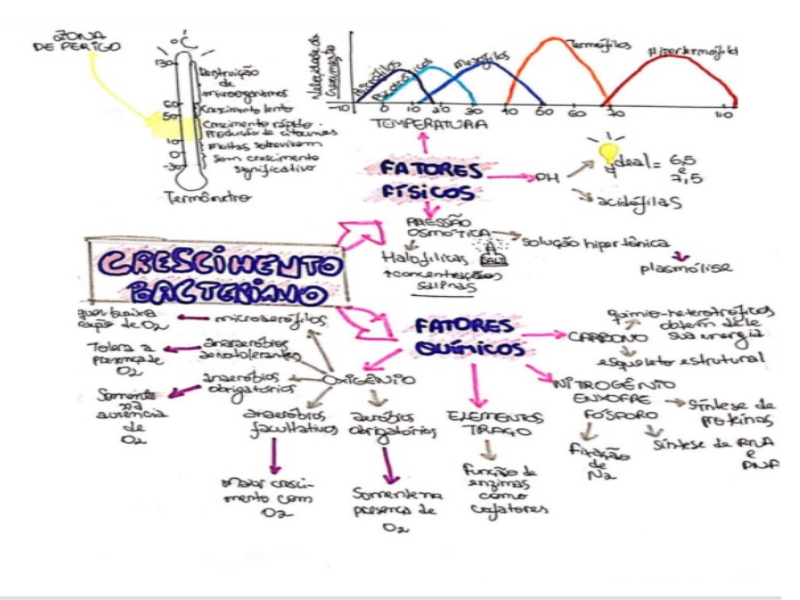 ZONA
DE PERIGO
°C
130
60
50
10
0
-30
Destruição
de
microorganismos
Crescimento lento
Crescimento rápido
Produção de citocinas
Muitas sobrevivem
Sem crescimento
significativo
Termômetro
Velocidade de
Crescimento
Psicrófilos
Mesófilos
Termófilos
Hipertermófilos
-10 0 10 20 30 40 50 60 70 110
TEMPERATURA
FATORES
FÍSICOS
PH
ideal = 6,5
e
7,5
acidófilas
PRESSÃO
OSMÓTICA
Halofílicas
+concentrações
salinas
SALT
solução hipertônica
plasmólise
CRESCIMENTO
BACTERIANO
FATORES
QUÍMICOS
CARBONO
quimio-heterotróficos
obtem dele
sua energia
esqueleto estrutural
NITROGÊNIO
ENXOFRE
FÓSFORO
Síntese de
proteínas
Síntese de RNA
e
DNA
Fixação
de
N₂
ELEMENTOS
TRAÇO
Função de
enzimas
como
cofatores
OXIGÊNIO
microaerófilos
quer baixa
de O₂
anaeróbios
aerotolerantes
Tolera a
presença de
O₂
anaeróbios
obrigatórios
Somente
na
ausência
de
O₂
anaeróbios
facultativos
Maior cresci-
mento com
O₂
aeróbios
obrigatórios
Somente na
presença de
O₂